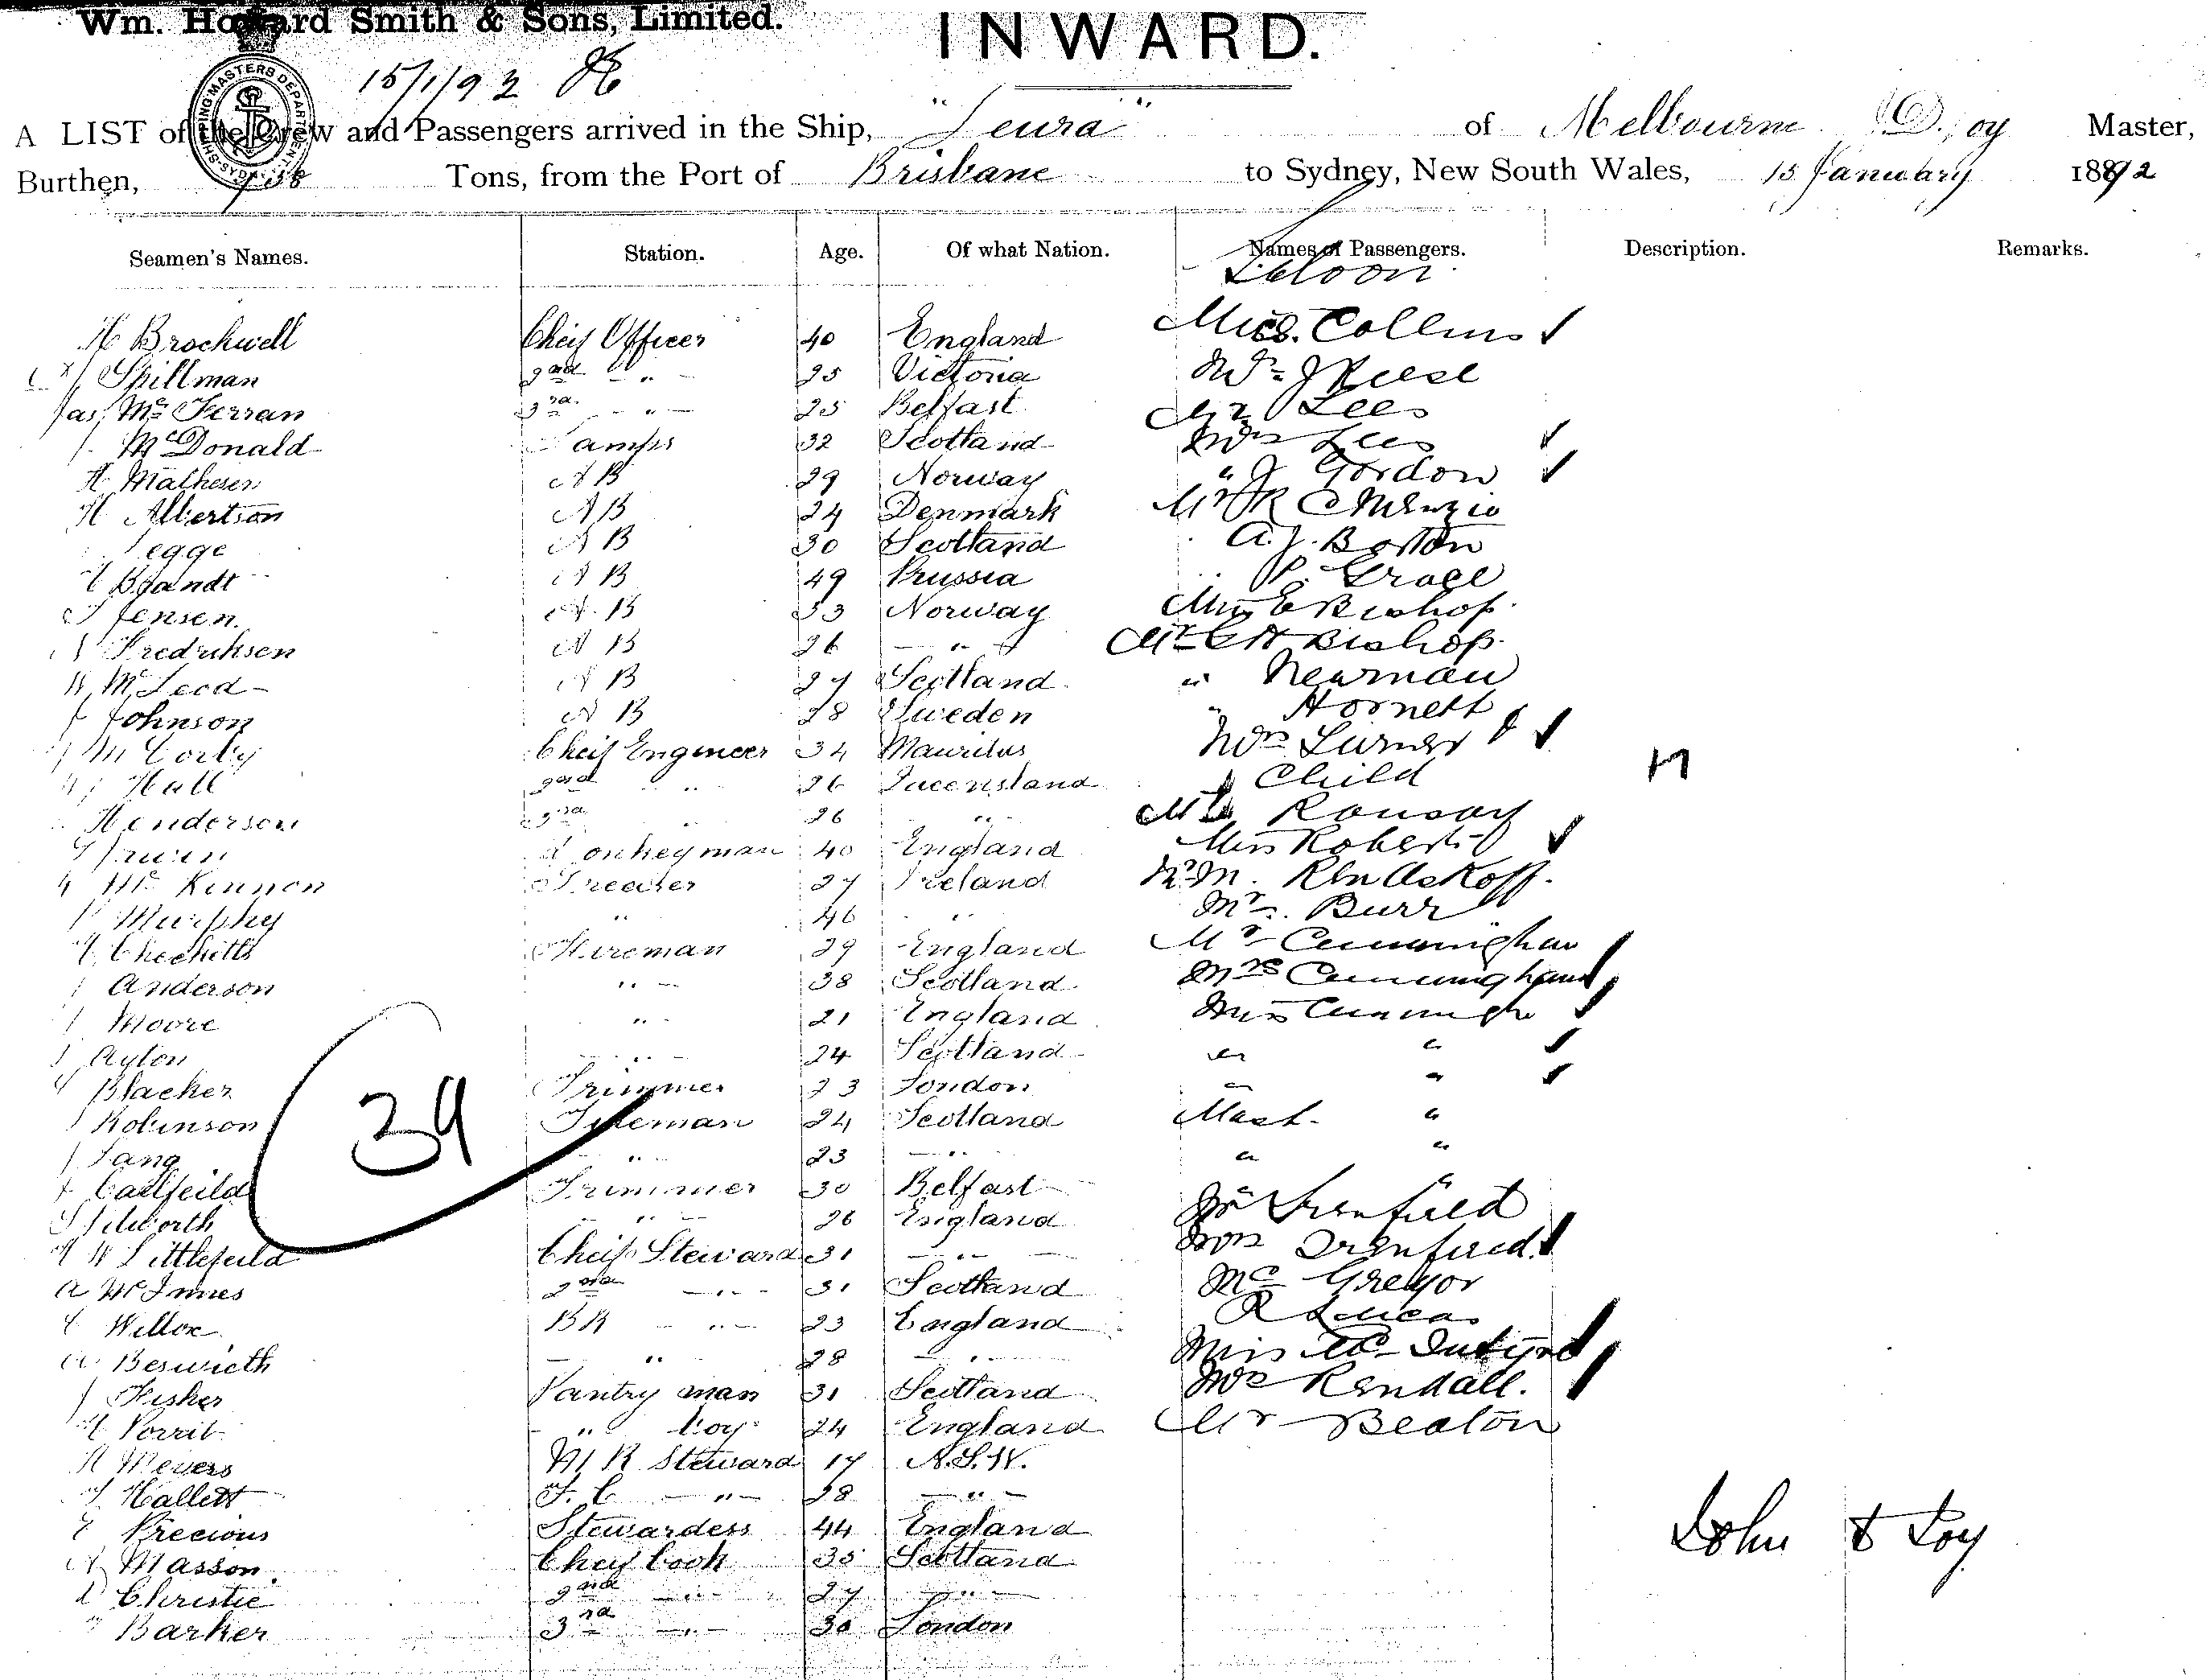 Wm. Howard Smith & Sons, Limited.
INWARD.
15/1/92
SHIPPING MASTERS DEPARTMENT SYDNEY
A LIST of the Crew and Passengers arrived in the Ship, "Leura" of Melbourne Master,
Burthen, Tons, from the Port of Brisbane to Sydney, New South Wales, 15 January 1892
Seamen's Names. Station. Age. Of what Nation. Names of Passengers. Description. Remarks.
Saloon
H Brockwell Cheif Officer 40 England Collins
Spillman 2nd " 25 Victoria Mr J Reese
Jas. McFerran 3rd " 25 Belfast Mr Lees
McDonald Lamps 32 Scotland Mrs Lees
H Mathesen A B 29 Norway " J Gordon
H Albertson A B 24 Denmark Mr R C Menzie
Legge A B 30 Scotland A. J. Boston
Brandt A B 49 Prussia P. Grace
Jensen. A. B 33 Norway Miss E Bishop.
Fredriksen A B 26 " Mr C H Bishop.
McLeod A B 27 Scotland " Newman
J Johnson A B 28 Sweden " Hornett
Cheif Engineer 34 Mauritus Mrs Turner
Hall 2nd " 26 Queensland & Child
Henderson 3rd " 26 " Ramsay
Irwin Donkeyman 40 England Miss Roberts
McKinnon Greaser 27 Ireland
Murphy " 46 " Mr. Burr
Checketts Fireman 29 England Mr Cunningham
Anderson " 38 Scotland Mrs Cunningham
Moore " 21 England Miss
Ayton " 24 Scotland " "
Blacker Trimmer 23 London " "
Robinson Fireman 24 Scotland Mast. "
Lang " 23 " " "
Caulfeild Trimmer 30 Belfast Mr
" 26 England Mrs
H W Littlefeild Cheif Steward 31 "
A McInnes 2nd " 31 Scotland McGregor
Willox B R " 23 England R Lucas
A Beswicth " 28 " Miss McIntyre
J Fisher Pantry man 31 Scotland Mrs Kendall.
Porrit " boy 24 England Mr Beaton
H Meyers M R Steward 17 N.S.W.
Hallett F. C " 28 "
E Precious Stewardess 44 England
Masson. Cheif Cook 35 Scotland
Christie 2nd " 27 "
Barker 3rd " 30 London
17
39
John Loy